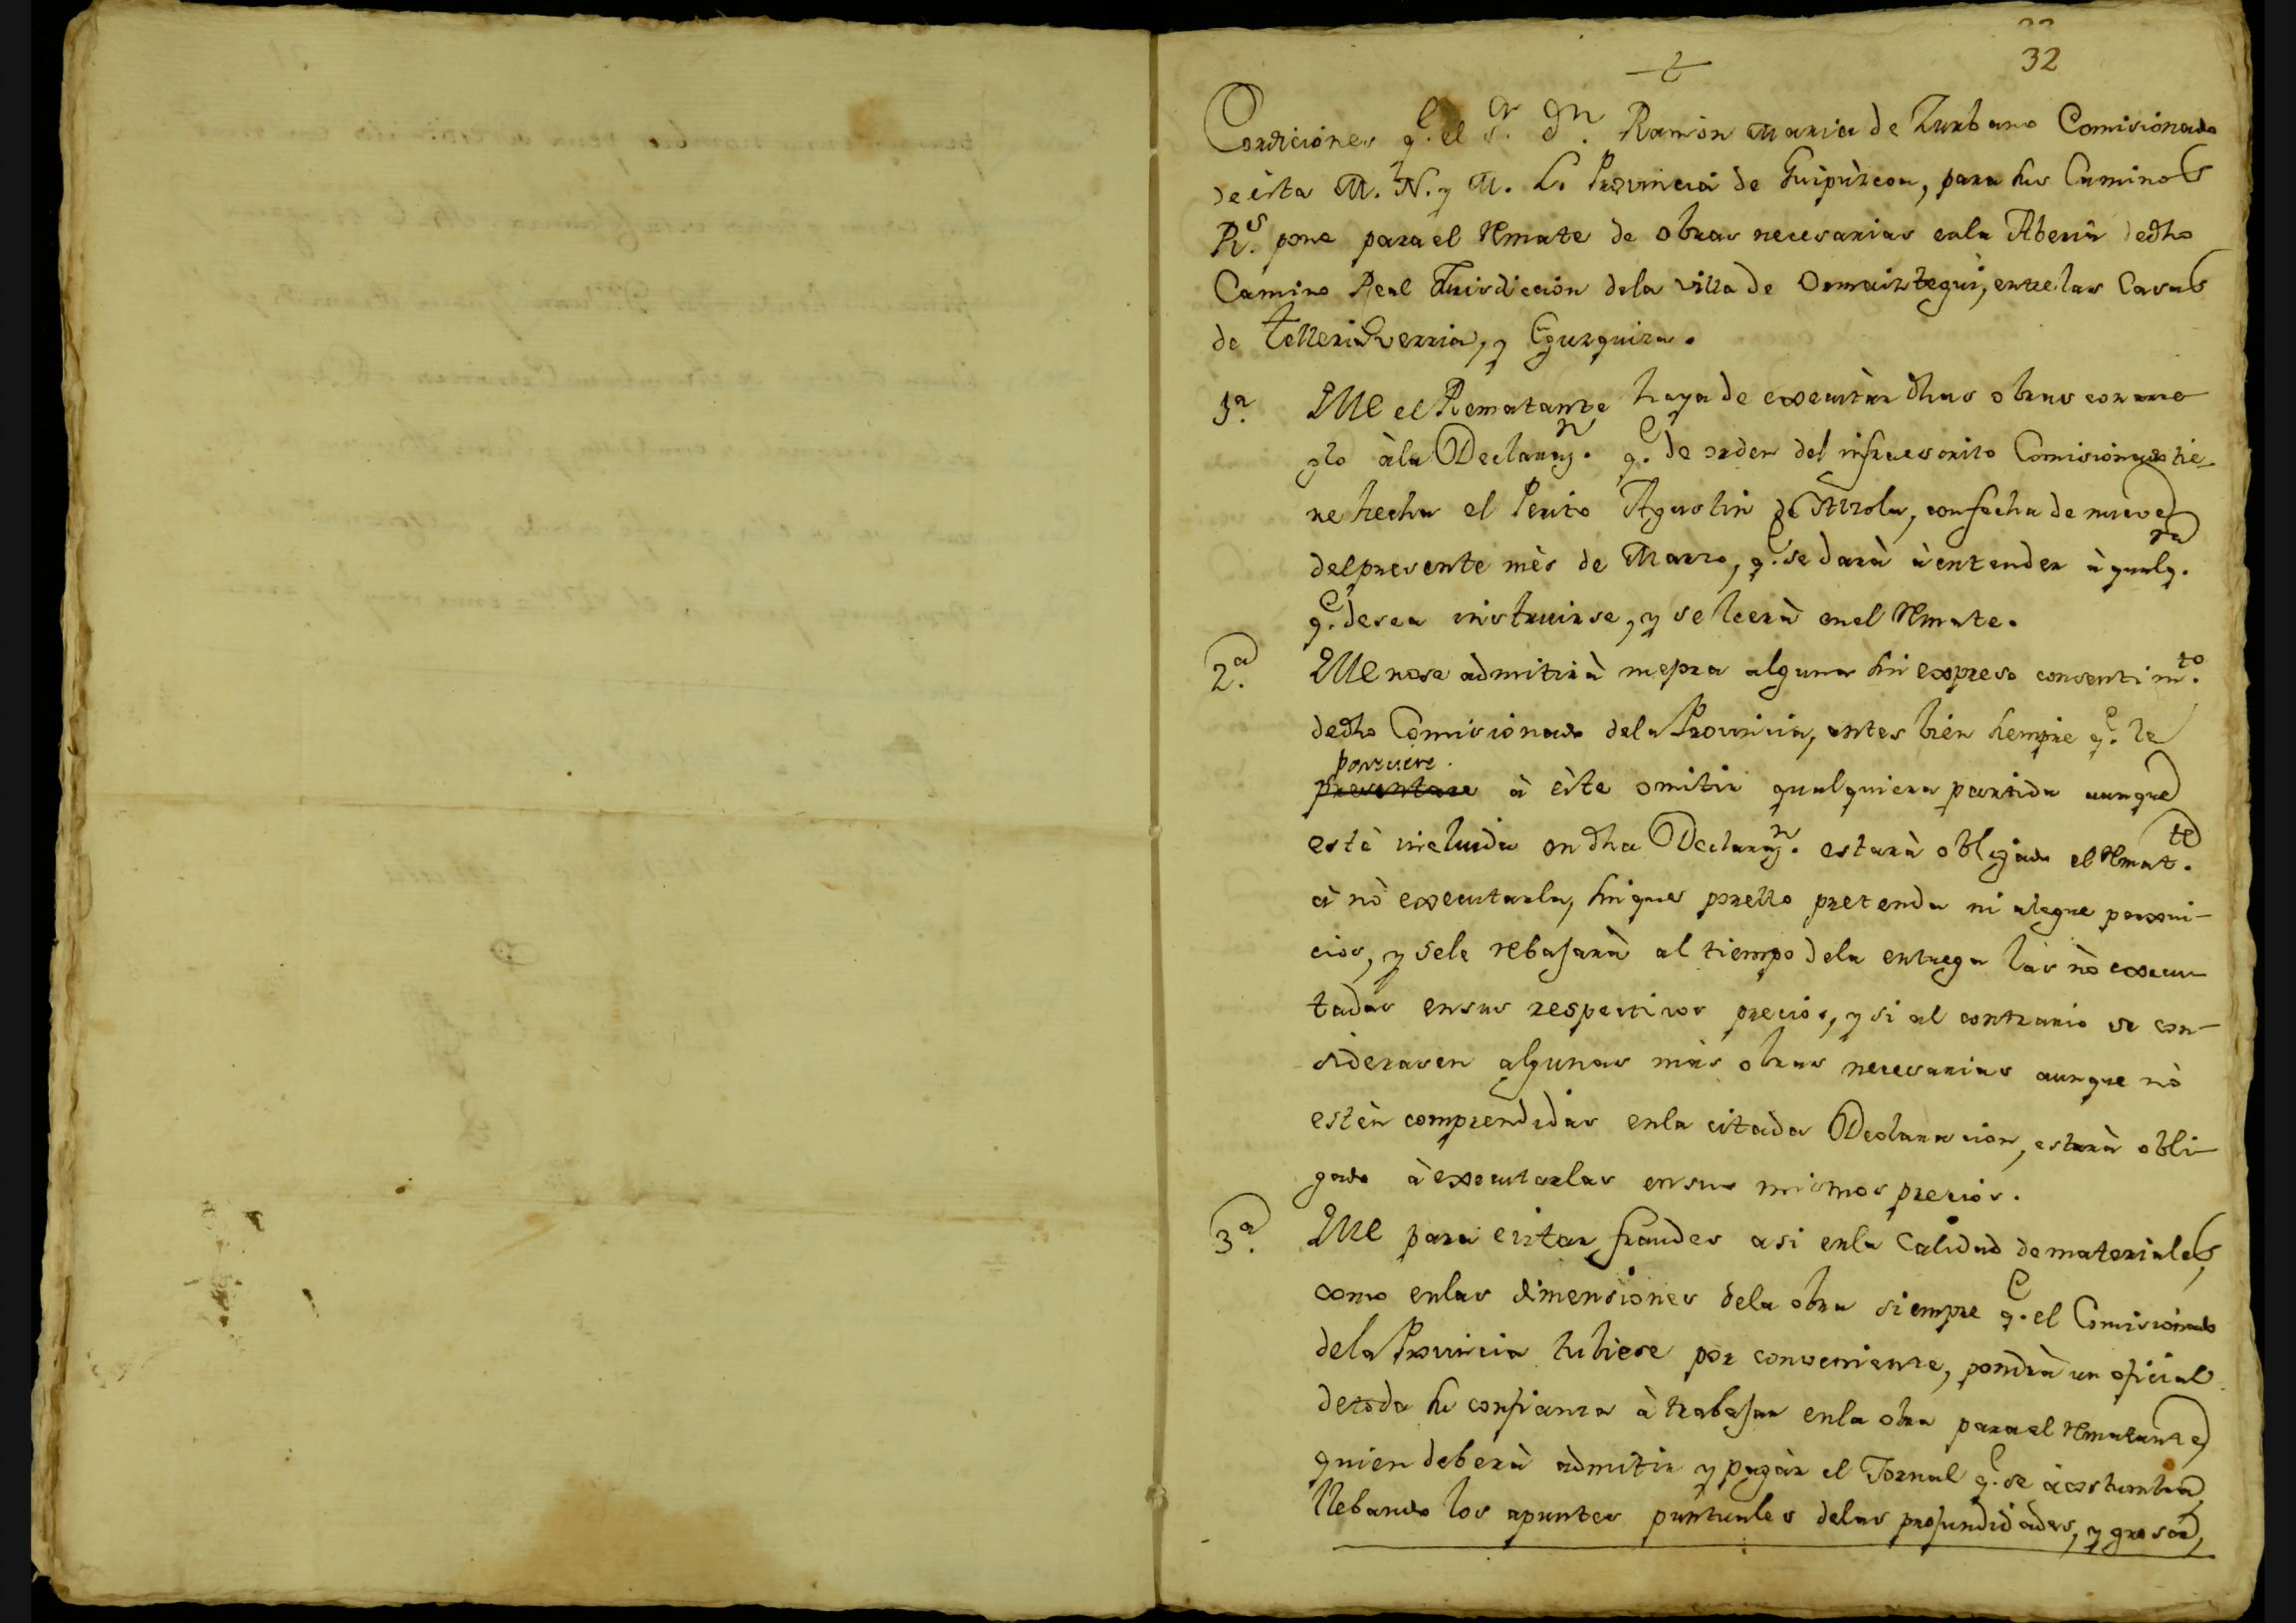 32
Condiciones q.e el S.r D.n Ramón Maria de Zurbano Comisionado
de ésta M. N. y M. L. Provincia de Guipúzcoa, para sus Caminos
R.s pone para el Rmate de obras necesarias enla Aberia de dho
Camino Real Jurisdicción dela villa de Ormaiztegui, entre las Casas
de Telleriaverria, y Egurguiza.
1.a QUE el Rematante haya de executar dhas obras con arre
glo àla Declaraz.n q.e de orden del infraescrito Comisionado tie-
ne hecha el Perito Agustin de Mrola, con fecha de nueve
del presente mès de Marzo, q.e se darà à entender à qualq.ra
q.e desea instruirse, y se leerà en el Rmate.
2.a QUE nose admitirà mejora alguna sin expreso consentim.to
de dho Comisionado dela Provincia, antes bien siempre q.e le
pareciere
presentare à éste omitir qualquiera partida aunque
esté incluida en dha Declaraz.n estarà obligado el Rmat.te
à nò executarla, sin que porello pretenda ni alegue perxui-
cios, y sele rebajarà al tiempo dela entrega las nò execu-
tadas ensus respectivos precios, y si al contrario se con-
siderasen algunas mas obras necesarias aunque nò
estèn comprendidas enla citada Declaracion, estarà obli-
gado à executarlas ensus mismos precios.
3.a QUE para evitar fraudes asi enla Calidad de materiales,
como enlas dimensiones dela obra siempre q.e el Comisionado
dela Provincia tubiese por conveniente, pondrà un oficial
detoda su confianza à trabajar enla obra para el Rmatante,
quien deberà admitir y pagàr el Jornal q.e se acostumbra,
llebando los apuntes puntuales delas profundidades, y grosor,